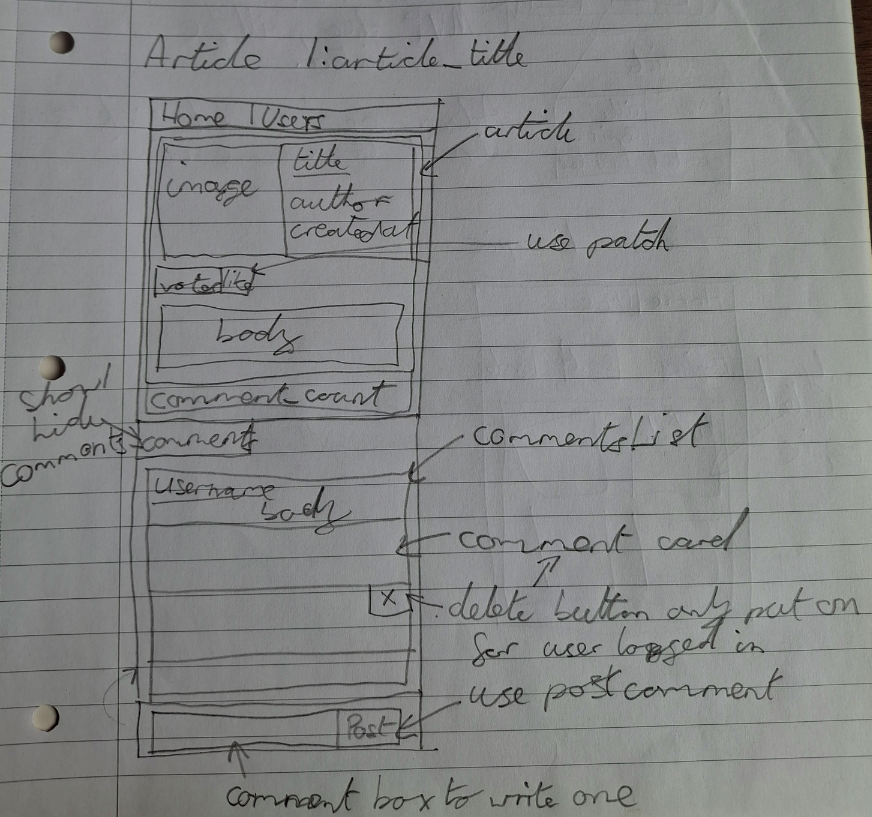 Article /:article_title
Home | Users
article
image
title
author
created_at
use patch
votes
body
comment_count
show/
hide
comments
comments
commentsList
username
body
comment card
X
delete button only put on
for user logged in
use postcomment
Post
comment box to write one